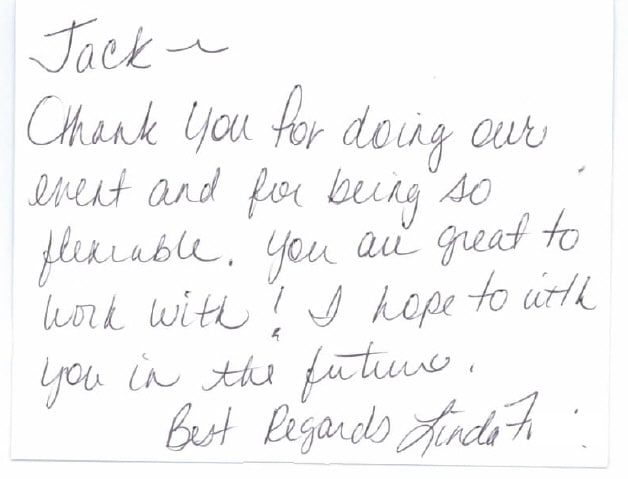 Jack ~
Thank You for doing our
event and for being so
flexiable. You are great to
work with! I hope to with
you in the future.
Best Regards Linda F.